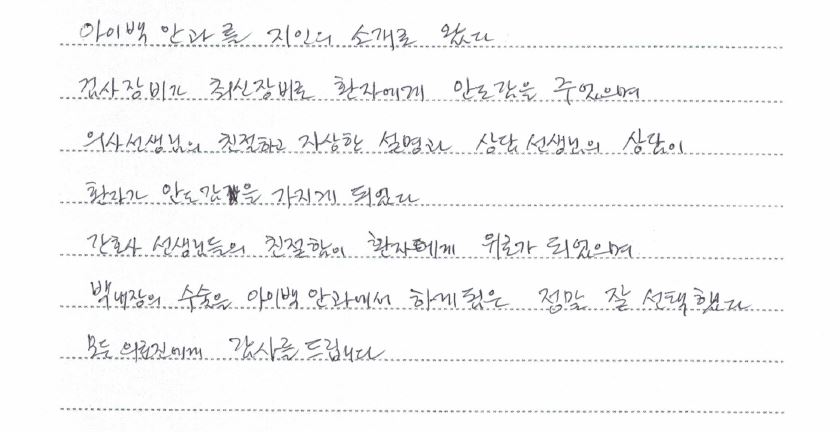 아이백 안과를 지인의 소개로 왔다
검사장비가 최신장비로 환자에게 안도감을 주었으며
의사선생님의 친절하고 자상한 설명과 상담선생님의 상담이
환자가 안도감을 가지게 되었다
간호사 선생님들의 친절함이 환자에게 위로가 되었으며
백내장의 수술을 아이백 안과에서 하게됨은 정말 잘 선택했다
모든 의료진에게 감사를 드립니다